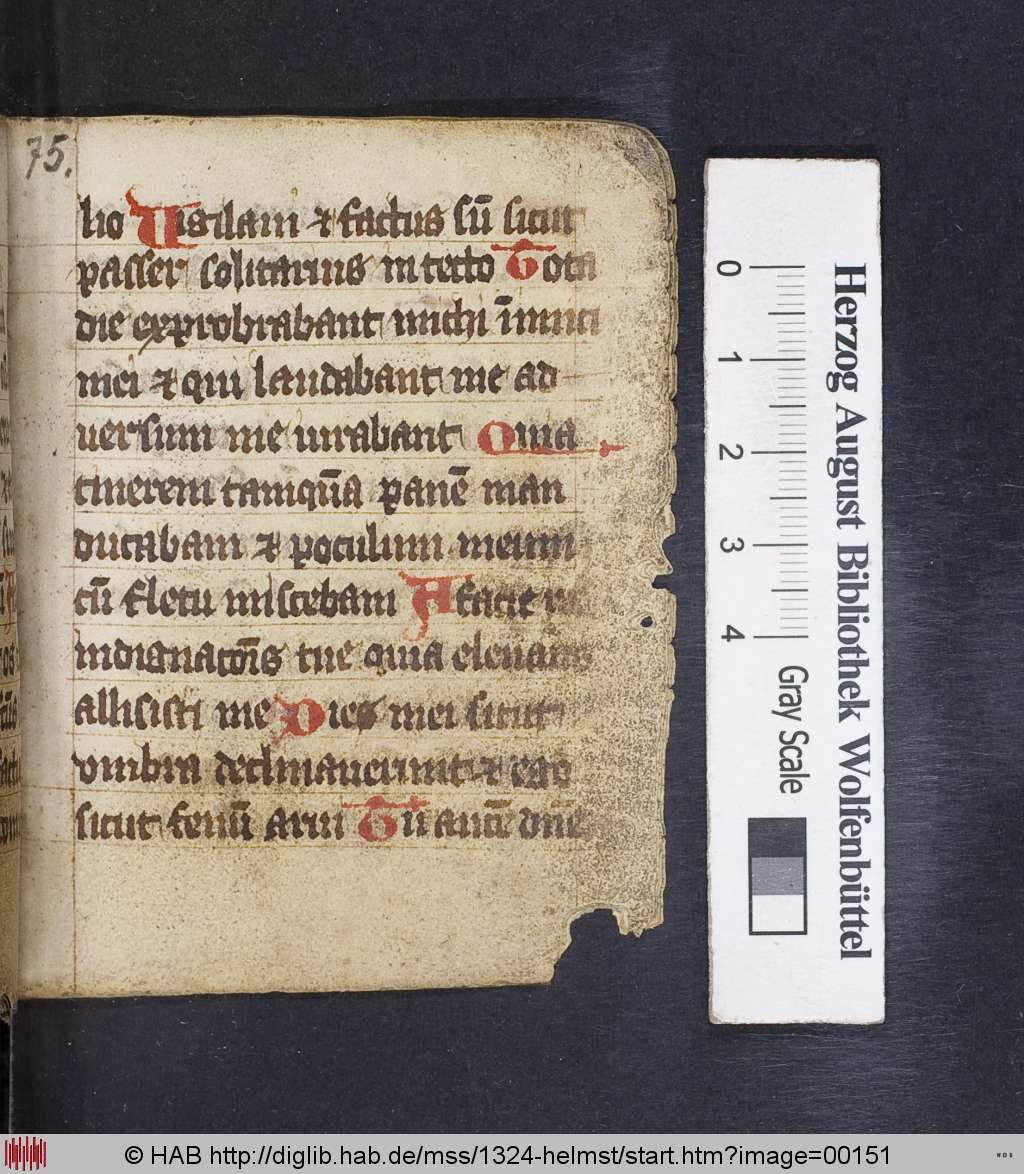 75.
lio Uigilam ⁊ factus sū sicut
passer solitarius in tecto Tota
die exprobrabant michi īimici
mei ⁊ qui laudabant me ad
uersum me iurabant Quia
cinerem tamqūa panē man
ducabam ⁊ poculum meum
cū fletu miscebam A facie
indignacōis tue quia eleuans
allisisti me Dies mei sicut
vmbra declinauerunt ⁊ ego
sicut fenū arui Tu autē dn̄e
0 1 2 3 4
Gray Scale
Herzog August Bibliothek Wolfenbüttel
© HAB http://diglib.hab.de/mss/1324-helmst/start.htm?image=00151